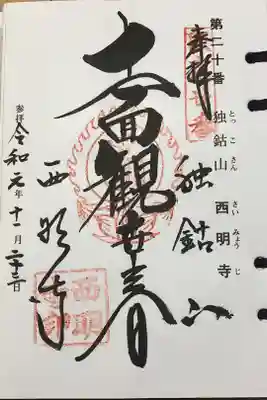 第二十番 独鈷山 西明寺
とっこさん さいみょうじ
奉拝
独鈷山
十一面観世音
西明寺
参拝 令和元年十一月二十三日